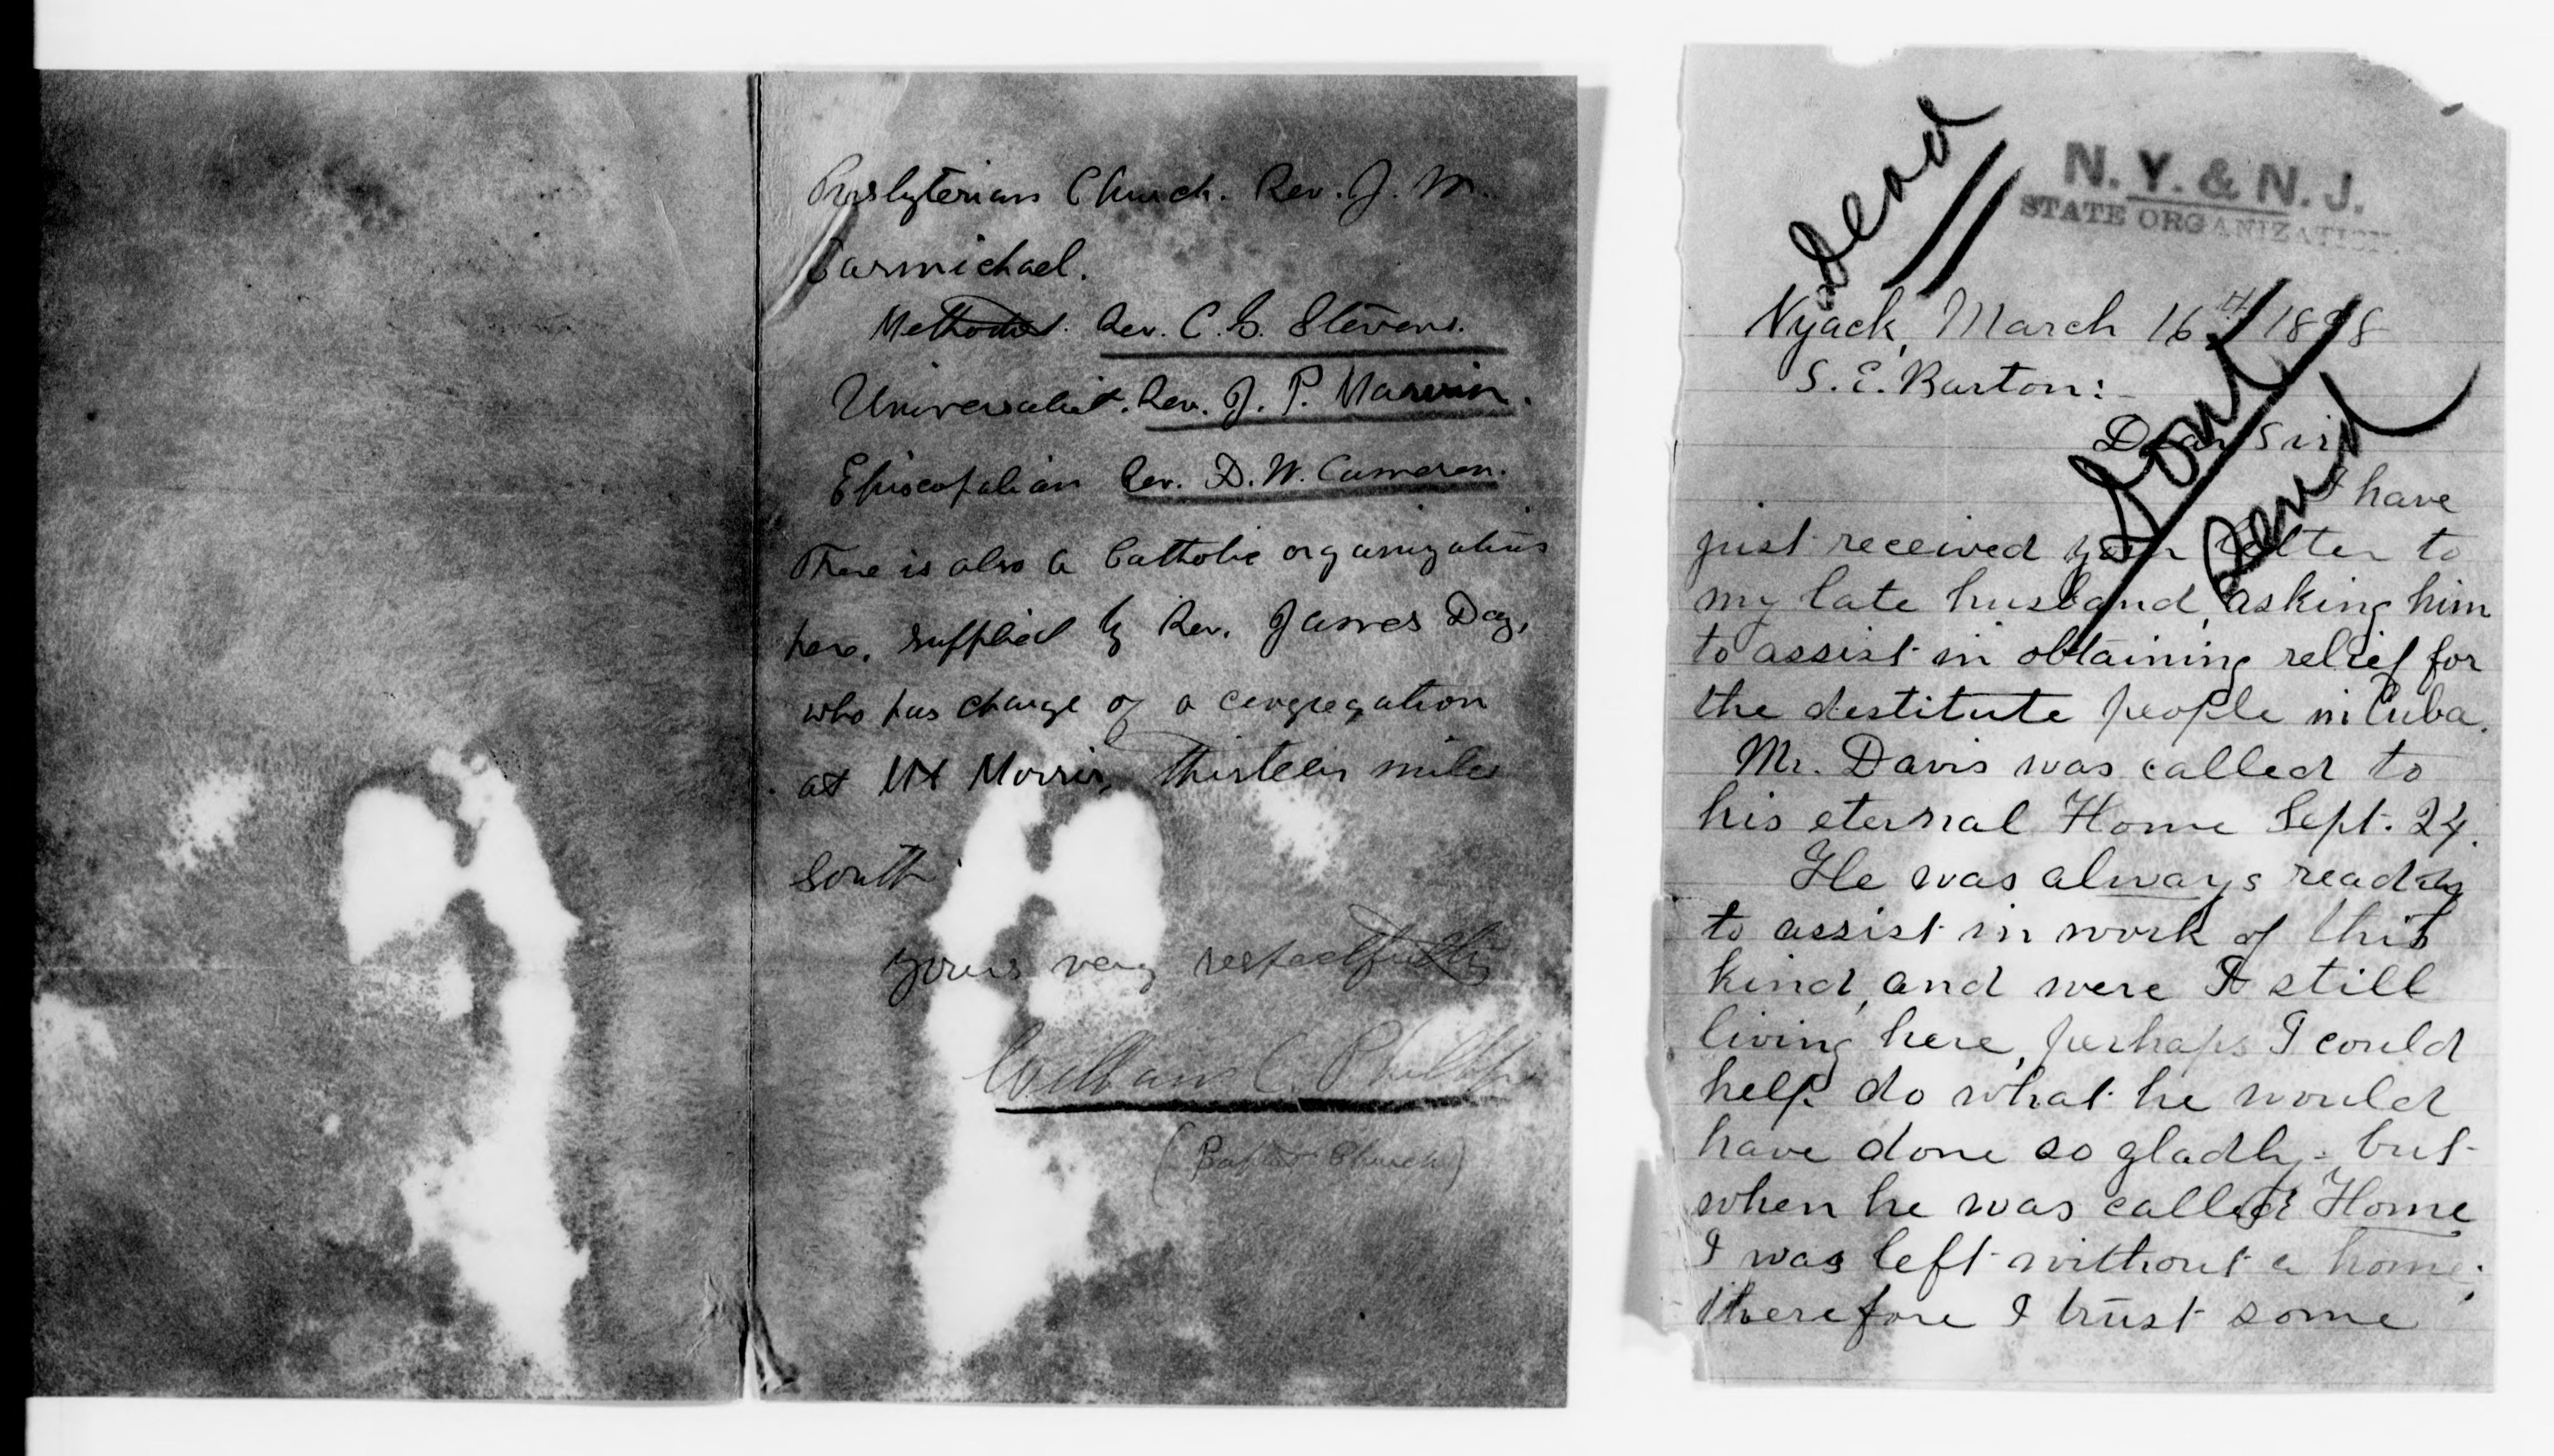 Presbyterian Church. Rev. J. M.
Carmichael.
Methodist. Rev. C. G. Stevens.
Universalist. Rev. J. P. Marvin.
Episcopalian Rev. D. W. Cameron.
There is also a Catholic organization
here. supplied by Rev. James Day,
who has charge of a congregation
at Mt Morris, thirteen miles
South
Yours very respectfully
William C. Phillips
(Baptist Church)
Dead
N. Y. & N. J.
STATE ORGANIZATION.
Nyack, March 16th 1898
S. E. Barton:
Dear Sir
I have
just received your letter to
my late husband, asking him
to assist in obtaining relief for
the destitute people in Cuba.
Mr. Davis was called to
his eternal Home Sept. 24.
He was always ready
to assist in work of this
kind, and were I still
living here, perhaps I could
help do what he would
have done so gladly - but
when he was called Home
I was left without a home;
therefore I trust some